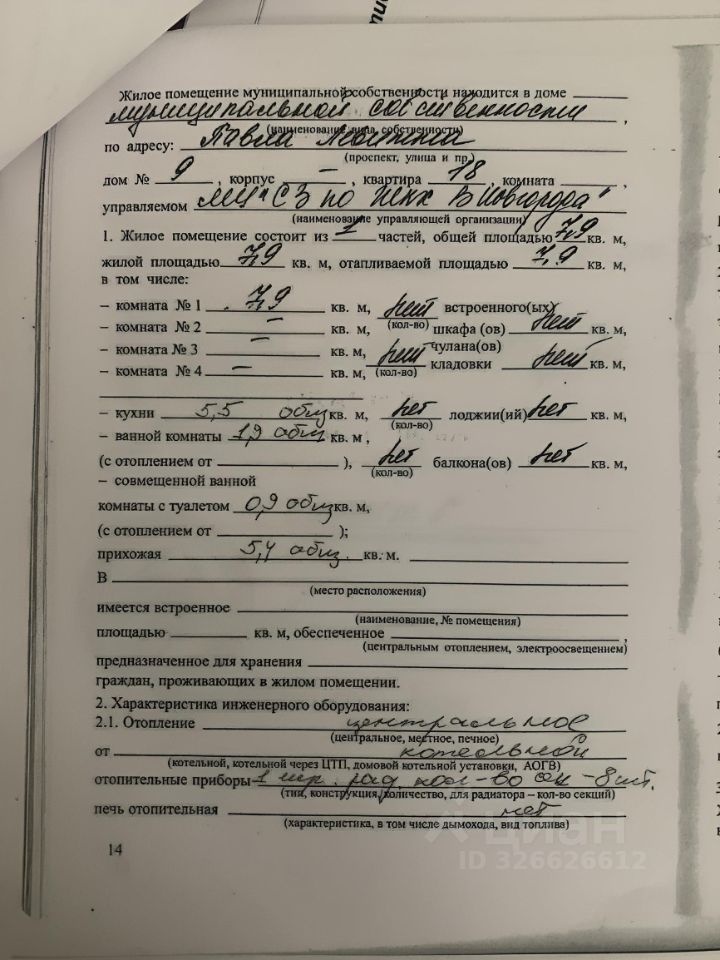 Жилое помещение муниципальной собственности находится в доме
муниципальной собственности ,
(наименование вида собственности)
по адресу: Павла
(проспект, улица и пр.)
дом № 9 , корпус – , квартира 18 , комната ,
управляемом МЦ "СЗ по ЖКХ В Новгорода"
(наименование управляющей организации)
1. Жилое помещение состоит из 1 частей, общей площадью 7,9 кв. м,
жилой площадью 7,9 кв. м, отапливаемой площадью 7,9 кв. м,
в том числе:
– комната № 1 7,9 кв. м, нет встроенного(ых)
– комната № 2 – кв. м, (кол-во) шкафа (ов) нет кв. м,
– комната № 3 – кв. м, нет чулана(ов)
– комната № 4 – кв. м, (кол-во) кладовки нет кв. м,
– кухни 5,5 общ кв. м, нет лоджии(ий) нет кв. м,
(кол-во)
– ванной комнаты 1,9 общ кв. м ,
(с отоплением от ), нет балкона(ов) нет кв. м,
(кол-во)
– совмещенной ванной
комнаты с туалетом 0,9 общ кв. м,
(с отоплением от );
прихожая 5,4 общ. кв. м.
В
(место расположения)
имеется встроенное
(наименование, № помещения)
площадью кв. м, обеспеченное ,
(центральным отоплением, электроосвещением)
предназначенное для хранения
граждан, проживающих в жилом помещении.
2. Характеристика инженерного оборудования:
2.1. Отопление центральное
(центральное, местное, печное)
от котельной
(котельной, котельной через ЦТП, домовой котельной установки, АОГВ)
отопительные приборы 1 рад. кол-во сек – 8 шт.
(тип, конструкция, количество, для радиатора – кол-во секций)
печь отопительная нет
(характеристика, в том числе дымохода, вид топлива)
циан
ID 326626612
14